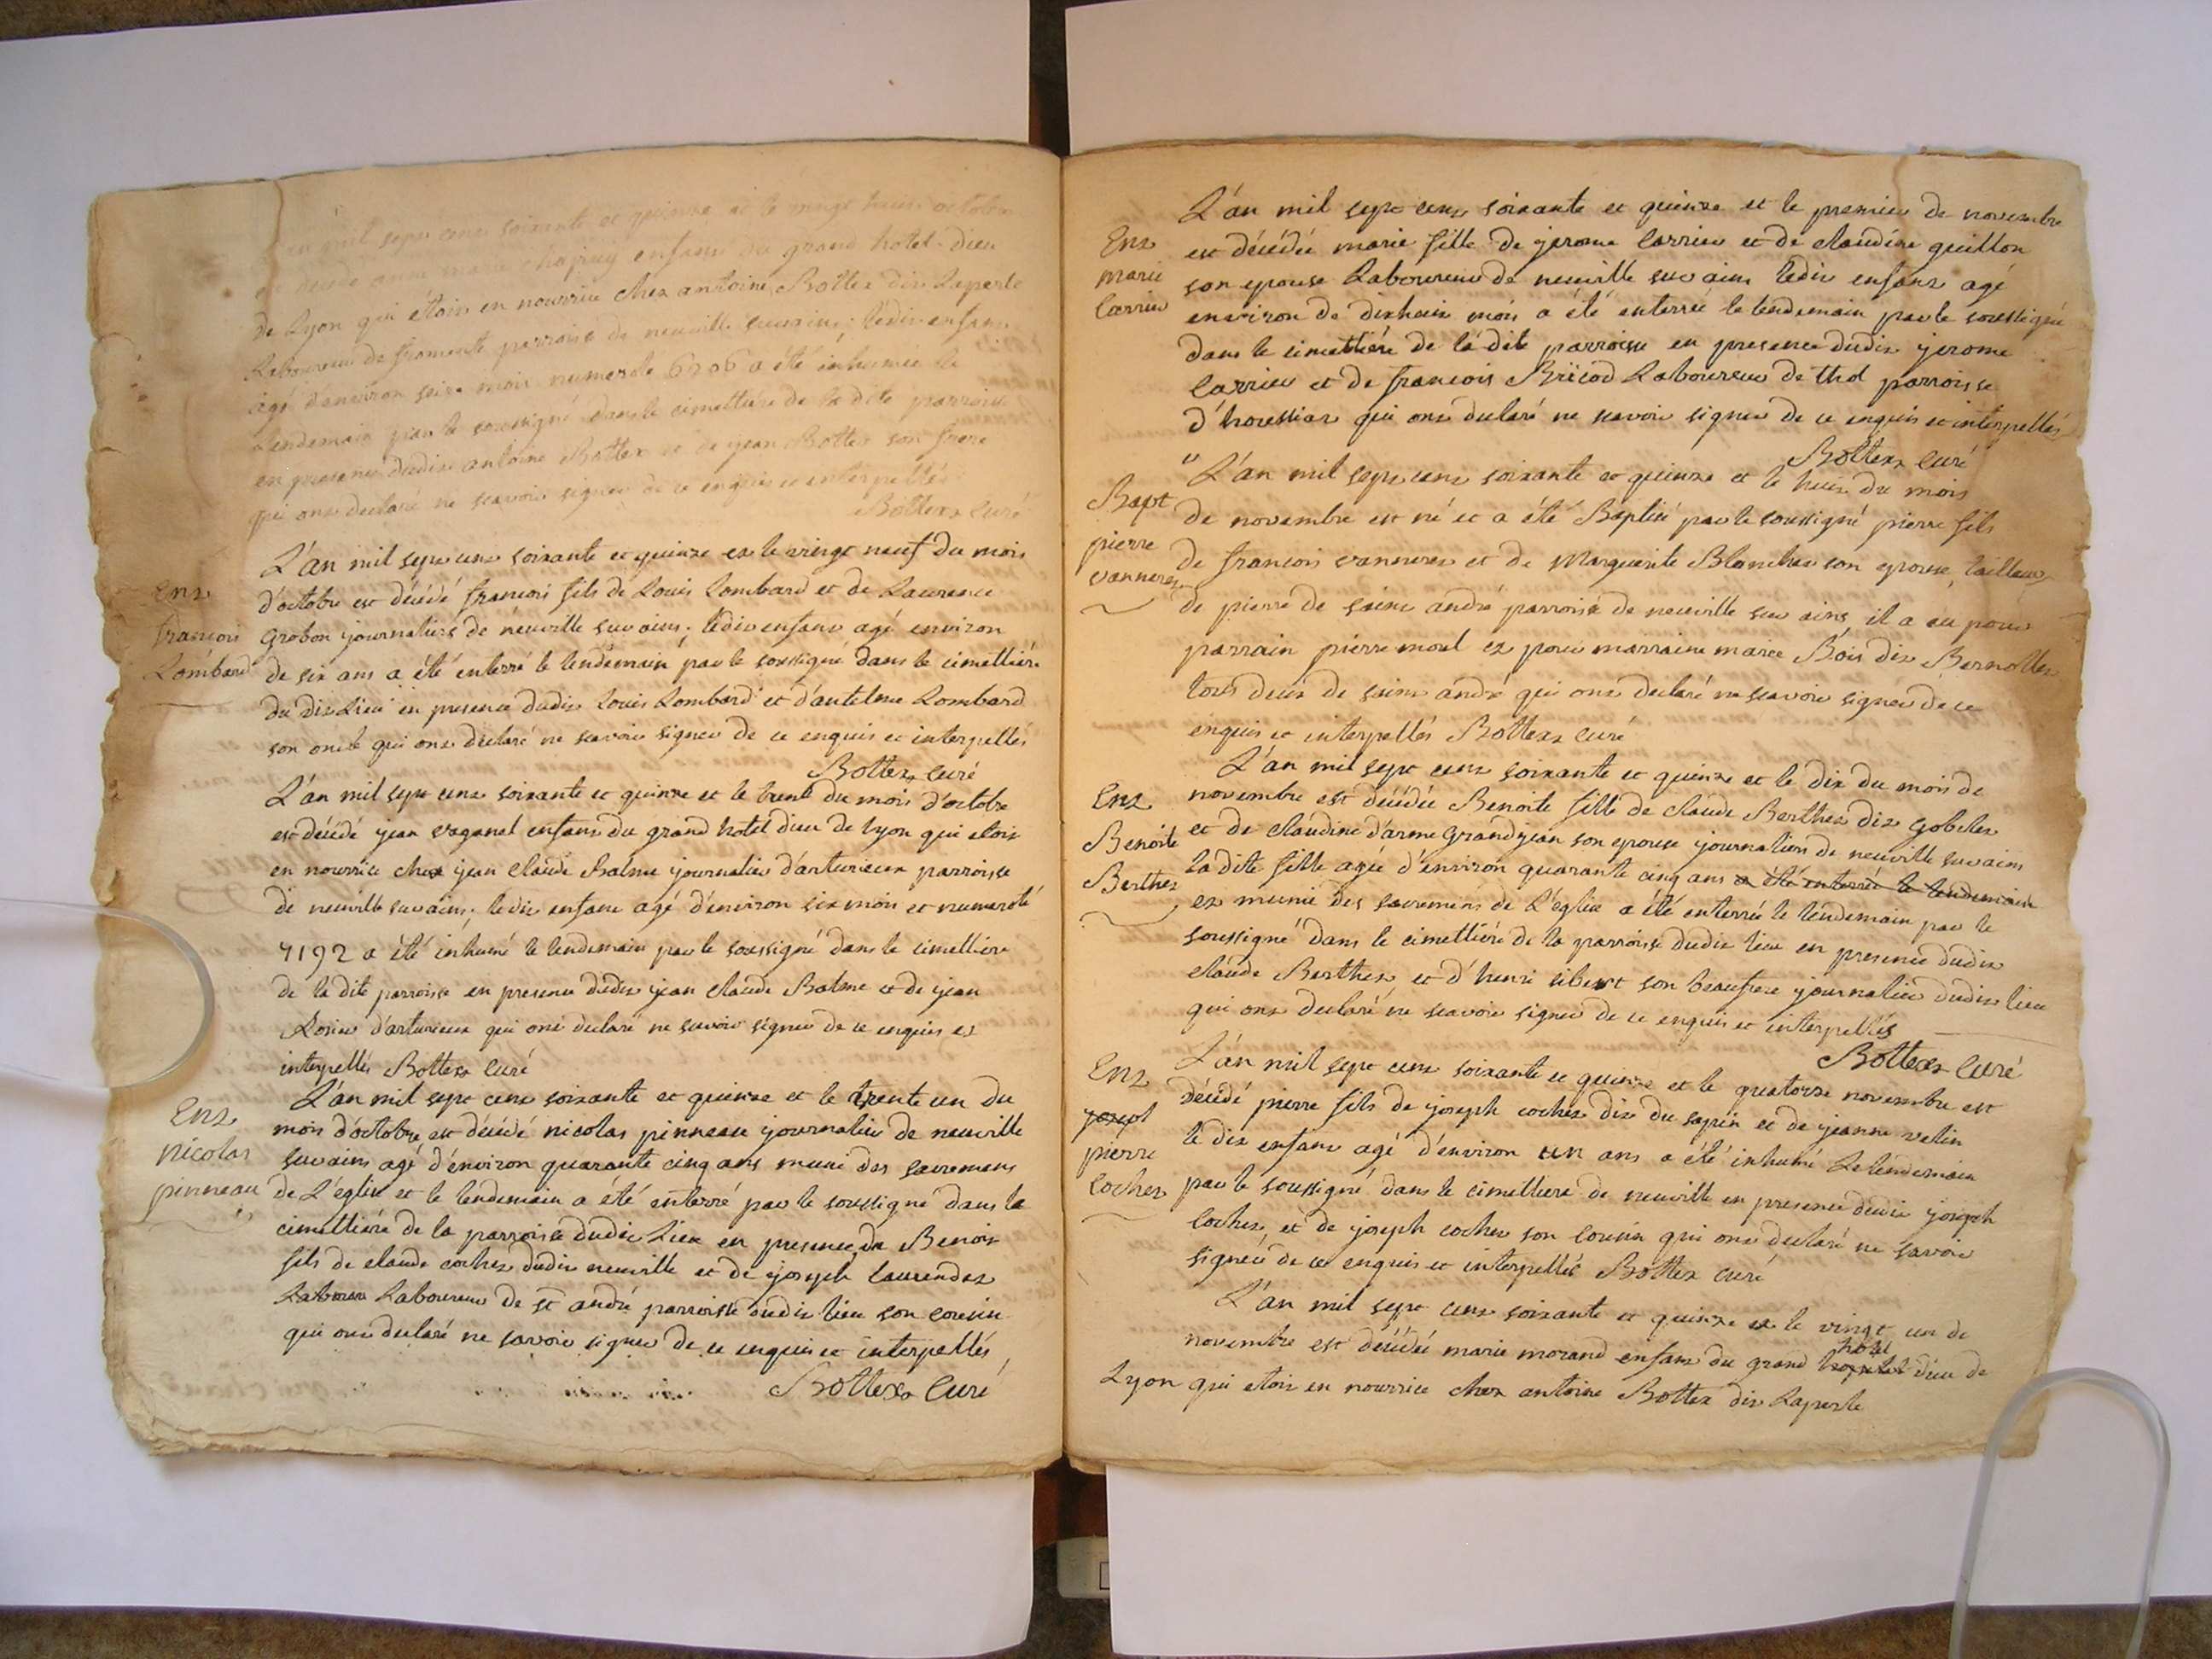 L'an mil sept cens soixante et quinze et le vingt huit octobre
est décédé anne marie enfant du grand hotel-dieu
de Lyon qui étoit en nourrice chez antoine Bottex dit Laperle
Laboureur de fromente parroisse de neuville sur ains; ledit enfant
agé d'environ seize mois numeroté 6206 a été inhumée le
Lendemain par le soussigné dans le cimettiére de la dite parroisse
en presence dudit antoine Bottex et de jean Bottex son frere
qui ont declaré ne scavoir signer de ce enquis et interpellés
Bottex curé
L'an mil sept cens soixante et quinze et le vingt neuf du mois
Ent
françois
Lombard
d'octobre est décédé françois fils de Louis Lombard et de Laurence
Grobon journaliers de neuville sur ains; ledit enfant agé environ
de six ans a été enterré le lendemain par le soussigné dans le cimettiére
du dit Lieu en presence dudit Louis Lombard et d'antelme Lombard
son oncle qui ont déclaré ne scavoir signer de ce enquis et interpellés
Bottex curé
L'an mil sept cens soixante et quinze et le trente du mois d'octobre
est décédé jean vaganal enfant du grand hotel dieu de lyon qui etoit
en nourrice chez jean claude Balme journalier d'arturieux parroisse
de neuville sur ains; ledit enfant agé d'environ six mois et numeroté
7192 a été inhumé le lendemain par le soussigné dans le cimettiere
de la dite parroisse en presence dudit jean claude Balme et de jean
Rosier d'arturieux qui ont declaré ne savoir signer de ce enquis et
interpellés Bottex curé
L'an mil sept cens soixante et quinze et le trente un du
Ent
nicolas
pinneau
mois d'octobre est décédé nicolas pinneau journalier de neuville
sur ains agé d'environ quarante cinq ans muni des sacremens
de L'eglise et le lendemain a été enterré par le soussigné dans le
cimettiére de la parroisse dudit Lieu en presence de Benoit
fils de claude cochet dudit neuville et de joseph laurendet
Labour Laboureur de st andré parroisse dudit lieu son cousin
qui ont declaré ne savoir signer de ce enquis et interpellés
Bottex curé
L'an mil sept cens soixante et quinze et le premier de novembre
Ent
marie
Carrier
est décédée marie fille de jerome Carrier et de claudine guillon
son epouse Laboureur de neuville sur ains ledit enfant agé
environ de dixhuit mois a été enterrée le lendemain par le soussigné
dans le cimettiére de la dite parroisse en presence dudit jerome
Carrier et de françois Bricod Laboureur de thol parroisse
d'houssiat qui ont declaré ne scavoir signer de ce enquis et interpellés
Bottex curé
L'an mil sept cens soixante et quinze et le huit du mois
Bapt
pierre
vanneret
de novembre est né et a été Baptisé par le soussigné pierre fils
de françois vanneret et de Marguerite Blanchet son epouse, tailleur
de pierre de saint andré parroisse de neuville sur ains, il a eu pour
parrain pierre morel et pour marraine marie Bois dit Bernollet
tous deux de saint andré qui ont declaré ne scavoir signer de ce
enquis et interpellés Bottex curé
L'an mil sept cens soixante et quinze et le dix du mois de
Ent
Benoite
Berthet
novembre est décédée Benoite fille de claude Berthet dit gobelet
et de claudine d'arme Grandjean son epouse journaliers de neuville sur ains
la dite fille agée d'environ quarante cinq ans a été enterrée le lendemain
et munie des sacremens de L'église a été enterrée le lendemain par le
soussigné dans le cimettiére de la parroisse dudit lieu en presence dudit
claude Berthet et d'henri sibert son beaufrere journalier dudit lieu
qui ont declaré ne scavoir signer de ce enquis et interpellés
Bottex curé
L'an mil sept cens soixante et quinze et le quatorze novembre est
Ent
joseph
pierre
Cochet
décédé pierre fils de joseph cochet dit du sapin et de jeanne velin
le dit enfant agé d'environ un ans a été inhumé Le lendemain
par le soussigné dans le cimettiere de neuville en presence dudit joseph
Cochet, et de joseph cochet son cousin qui ont declaré ne savoir
signer de ce enquis et interpellés Bottex curé
L'an mil sept cens soixante et quinze et le vingt un de
novembre est décédée marie morand enfant du grand hotel dieu de
Lyon qui etoit en nourrice chez antoine Bottex dit Laperle